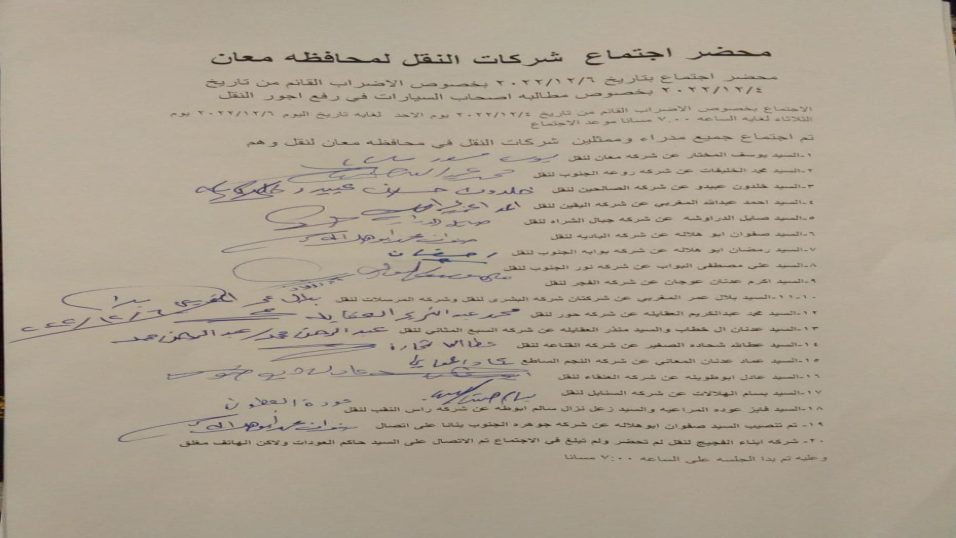 محضر اجتماع شركات النقل لمحافظه معان
محضر اجتماع بتاريخ ٢٠٢٢/١٢/٦ بخصوص الاضراب القائم من تاريخ
٢٠٢٢/١٢/٤ بخصوص مطالبه اصحاب السيارات في رفع اجور النقل
الاجتماع بخصوص الاضراب القائم من تاريخ ٢٠٢٢/١٢/٤ يوم الاحد لغايه تاريخ اليوم ٢٠٢٢/١٢/٦ يوم
الثلاثاء لغايه الساعه ٧,٠٠ مسانا موعد الاجتماع
تم اجتماع جميع مدراء وممثلين شركات النقل في محافظه معان لنقل وهم
١-السيد يوسف المختار عن شركه مغان لنقل
٢-السيد محمد الخليفات عن شركه روعه الجنوب لنقل
٣-السيد خلدون عبيدو عن شركه الصالحين لنقل خلدون عبيدو
٤-السيد احمد عبدالله المغربي عن شركه اليقين لنقل
٥-السيد صايل الدراوشه عن شركه جبال الشراه لنقل
٦-السيد صفوان ابو هلاله عن شركه الباديه لنقل
٧-السيد رمضان ابو هلاله عن شركه بوابه الجنوب لنقل رمضان
٨-السيد علي مصطفى البواب عن شركه نور الجنوب لنقل
٩-السيد اكرم عدنان عوجان عن شركه الفجر لنقل
١٠-١١-السيد بلال عمر المغربي عن شركتان شركه البشرى لنقل وشركه المرسلات لنقل بلال عمر المغربي ٢٠٢٢/١٢/٦
١٢-السيد محمد عبدالكريم العقايله عن شركه حور لنقل محمد عبدالكريم العقايله
١٣-السيد عدنان ال خطاب والسيد منذر العقايله عن شركه السبع المثاني لنقل عبدالرحمن محمد عبدالرحمن محمد
١٤-السيد عطاالله شحاده الصغير عن شركه القناعه لنقل
١٥-السيد عماد عدنان المعاني عن شركه النجم الساطع
١٦-السيد عادل ابوطوينه عن شركه العنقاء لنقل
١٧-السيد بسام الهلالات عن شركه السنابل لنقل
١٨-السيد فايز عوده المراعيه والسيد زعل نزال سالم ابوطه عن شركه راس النقب لنقل
١٩-تم تنصيب السيد صفوان ابوهلاله عن شركه جوهره الجنوب بنانا على اتصال
٢٠-شركه ابناء الفجيج لنقل لم تحضر ولم تبلغ في الاجتماع تم الاتصال على السيد حاكم العودات ولاكن الهاتف مغلق
وعليه تم بدا الجلسه على الساعه ٧:٠٠ مسانا